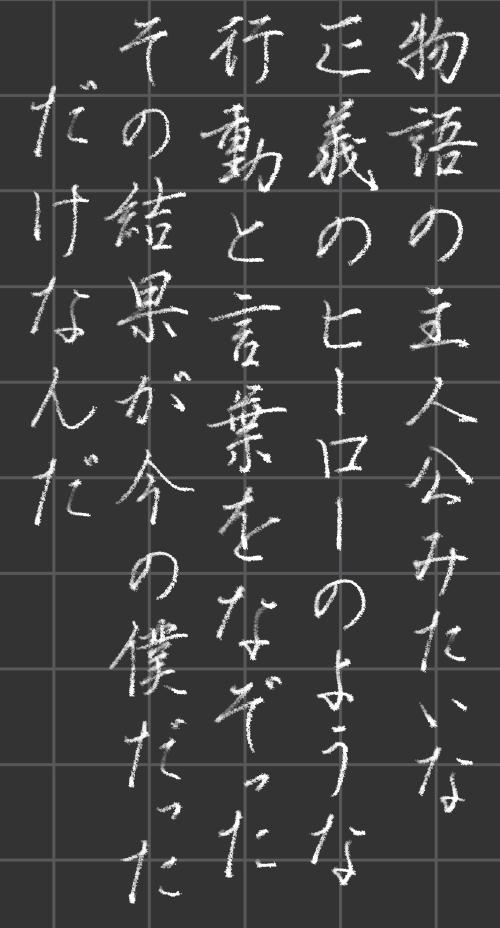 物語の主人公みたいな
正義のヒーローのような
行動と言葉をなぞった
その結果が今の僕だった
だけなんだ